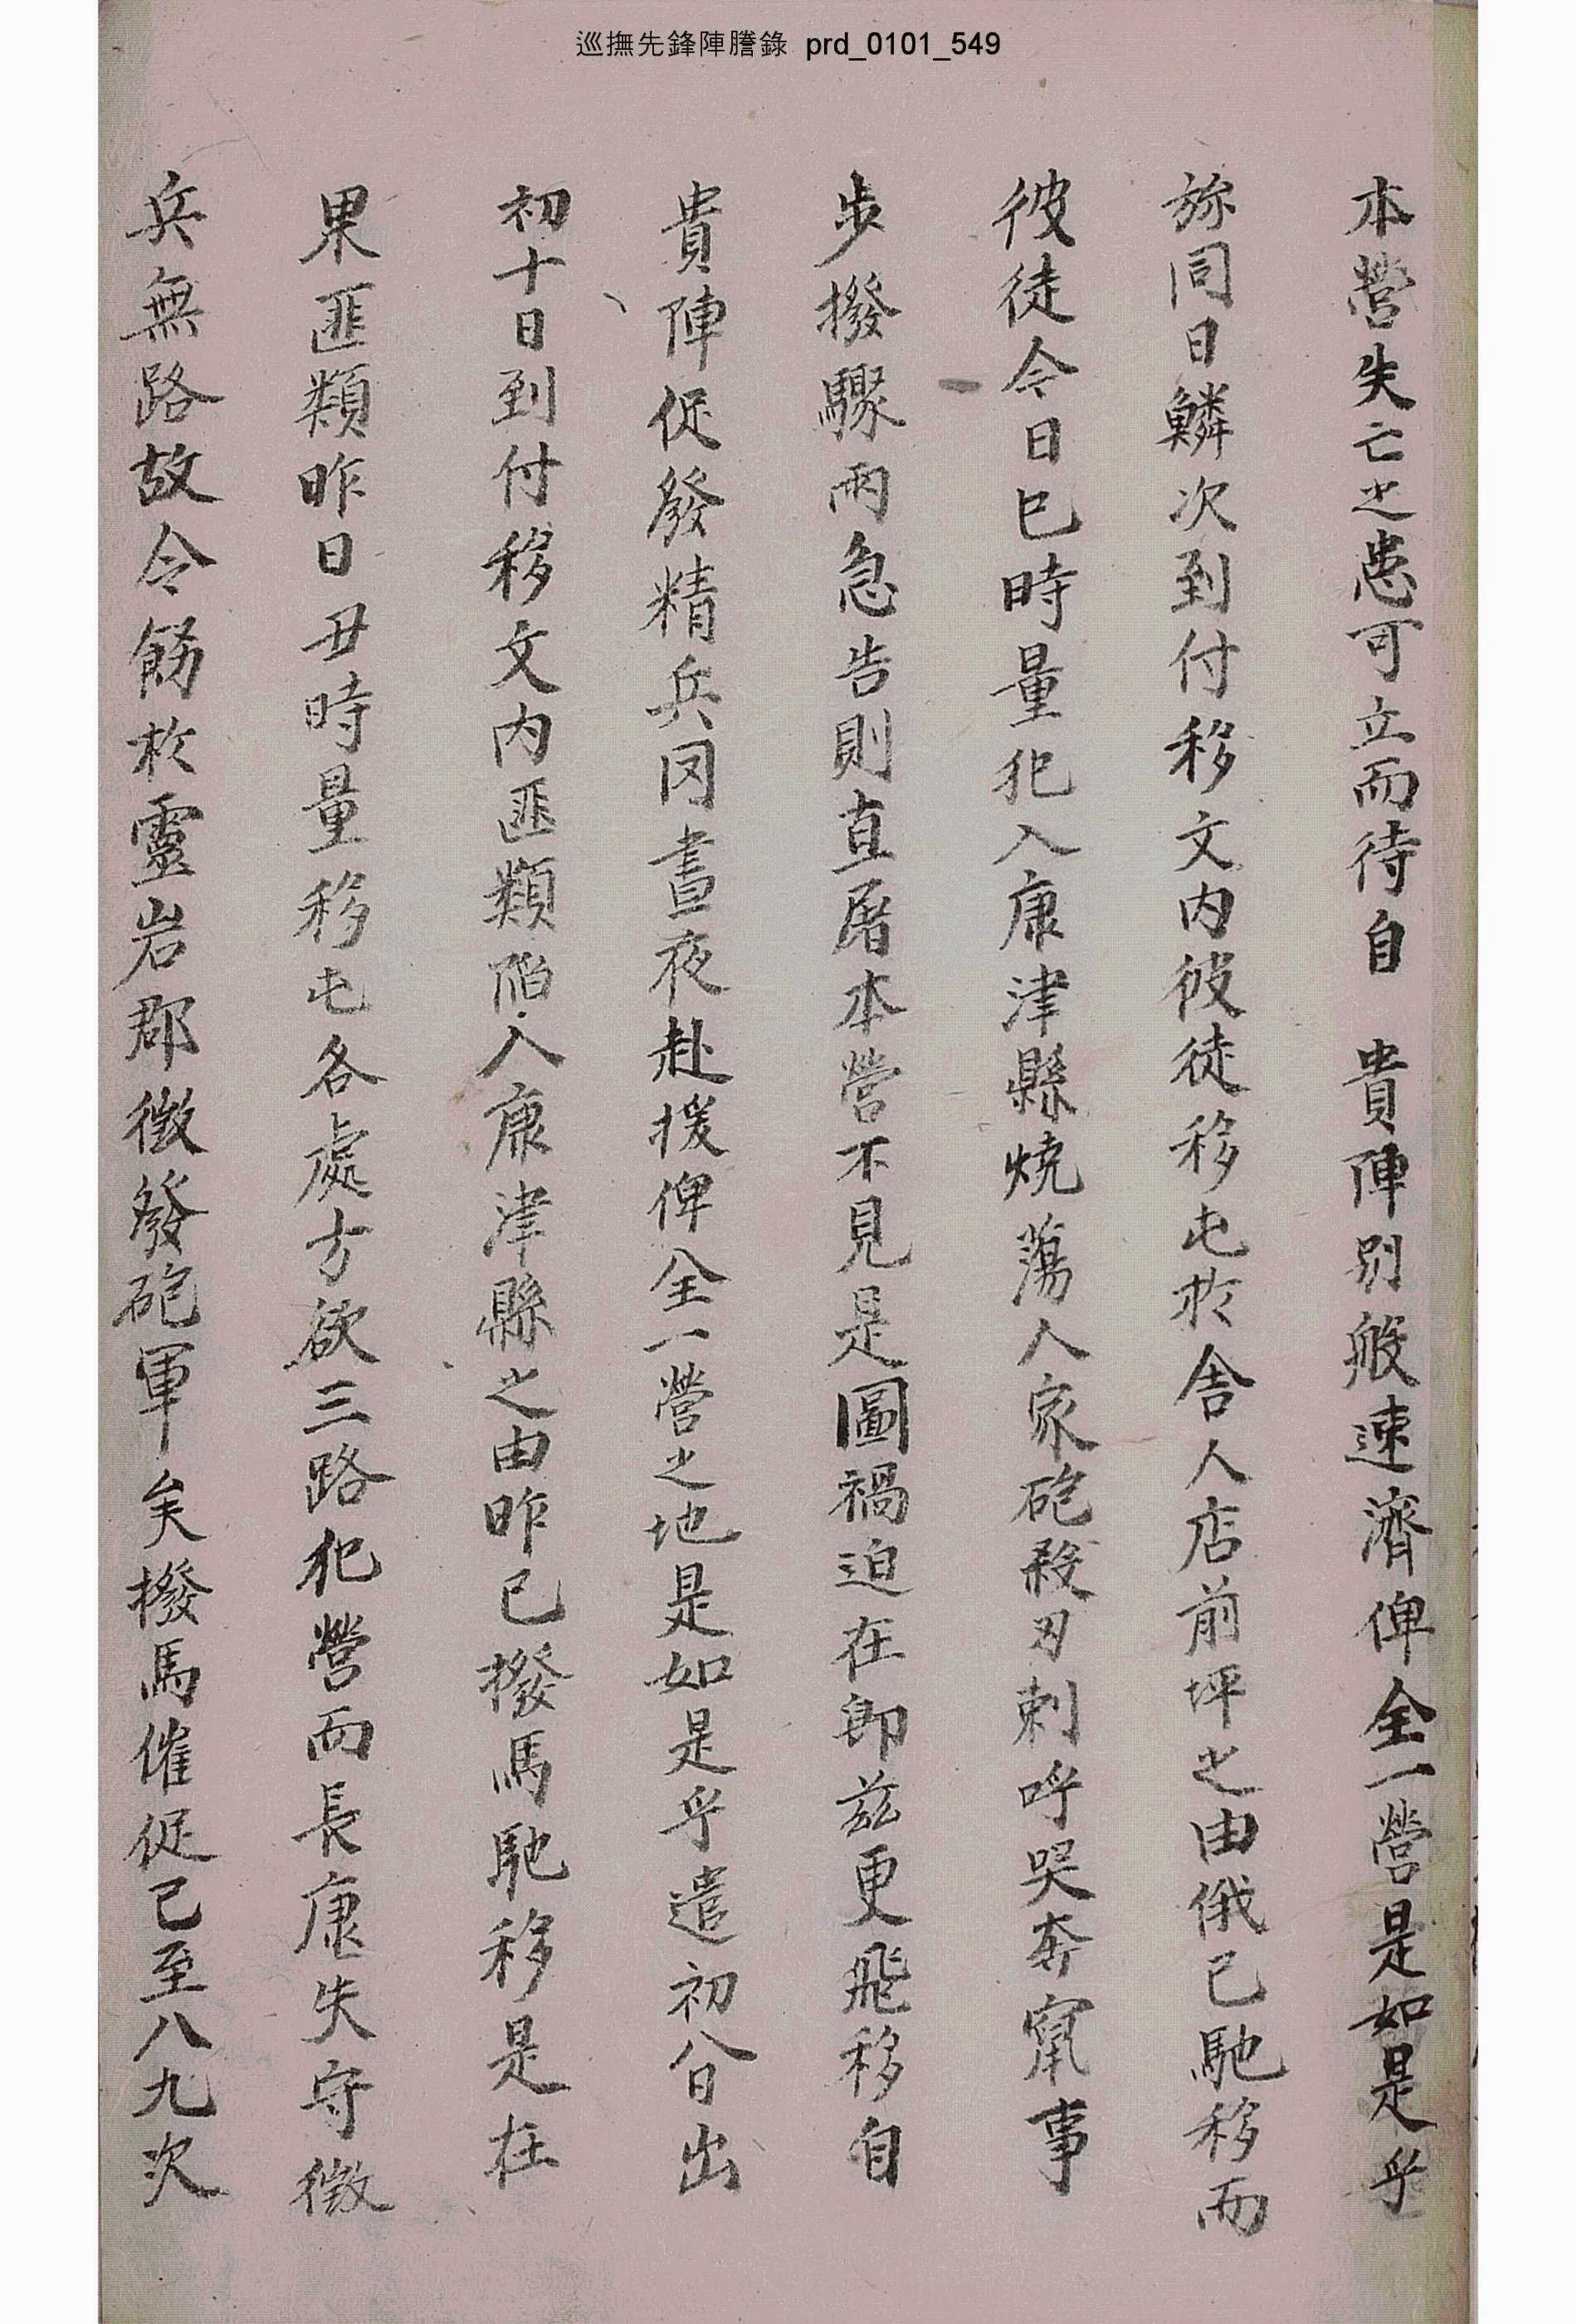 巡撫先鋒陣謄錄 prd_0101_549
本營失亡之患可立而待自 貴陣別般速濟俾全一營是如是乎
旀同日鱗次到付移文內彼徒移屯於舍人店前坪之由俄已馳移而
彼徒今日巳時量犯入康津縣燒蕩人家砲殺刃刺呼哭奔竄事
步撥驟雨急告則直屠本營不見是圖禍迫在卽玆更飛移自
貴陣促發精兵罔晝夜赴援俾全一營之地是如是乎遣初十一日出
初十日到付移文內匪類陷入康津縣之由昨已撥馬馳移是在
果匪類昨日丑時量移屯各處方欲三路犯營而長康失守徵
兵無路故令飭於靈岩郡徵發砲軍矣撥馬催促已至八九次